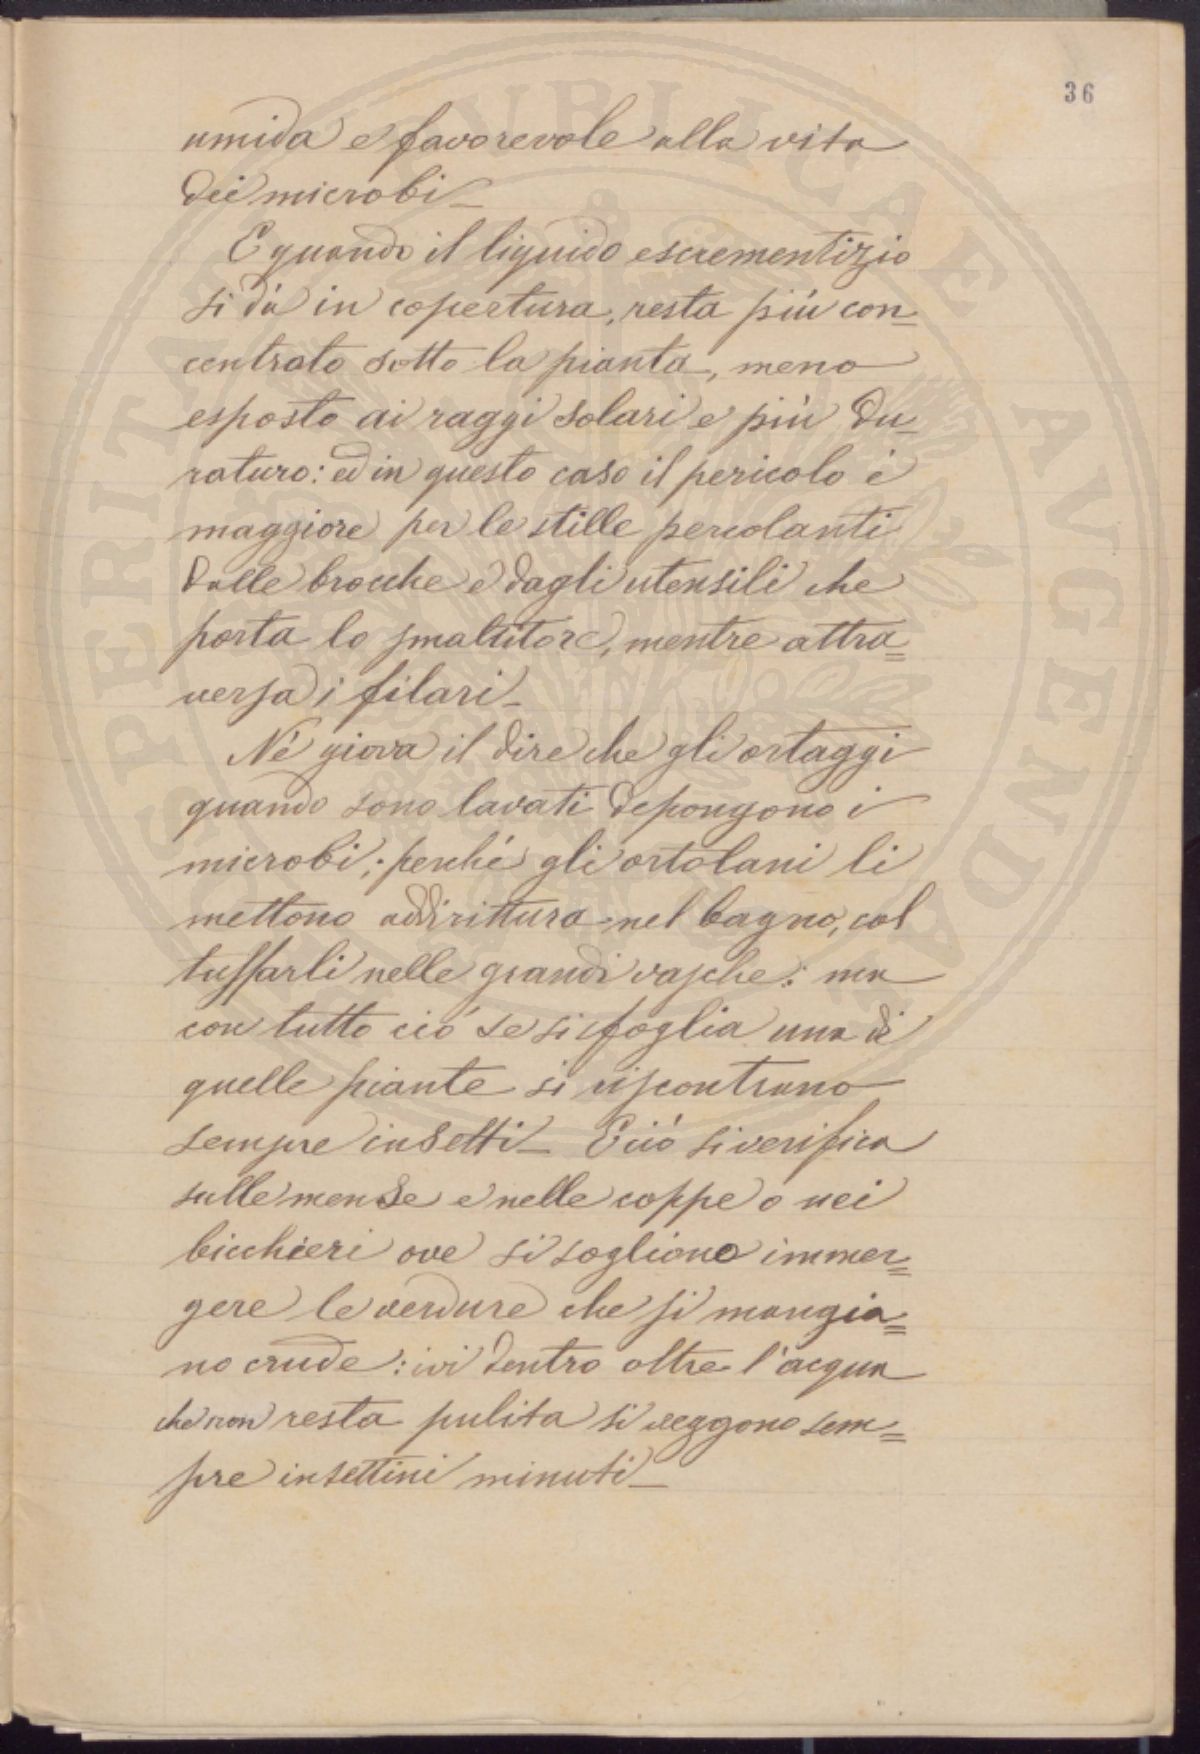 36
umida e favorevole alla vita
dei microbi_
E quando il liquido escrementizio
si dà in copertura, resta più con=
centrato sotto la pianta, meno
esposto ai raggi solari e più du=
raturo: ed in questo caso il pericolo è
maggiore per le stille percolanti
dalle brocche e dagli utensili che
porta lo smaltitore, mentre attra=
versa i filari_
Nè giova il dire che gli ortaggi
quando sono lavati depongono i
microbi; perchè gli ortolani li
mettono addirittura nel bagno, col
tuffarli nelle grandi vasche: ma
con tutto ciò se si sfoglia una di
quelle piante si riscontrano
sempre insetti_ E ciò si verifica
sulle mense e nelle coppe o nei
bicchieri ove si sogliono immer=
gere le verdure che si mangia=
no crude: ivi dentro oltre l'acqua
che non resta pulita si veggono sem=
pre insettini minuti_
PVBLICAE AVGENDAE
PROSPERITATI